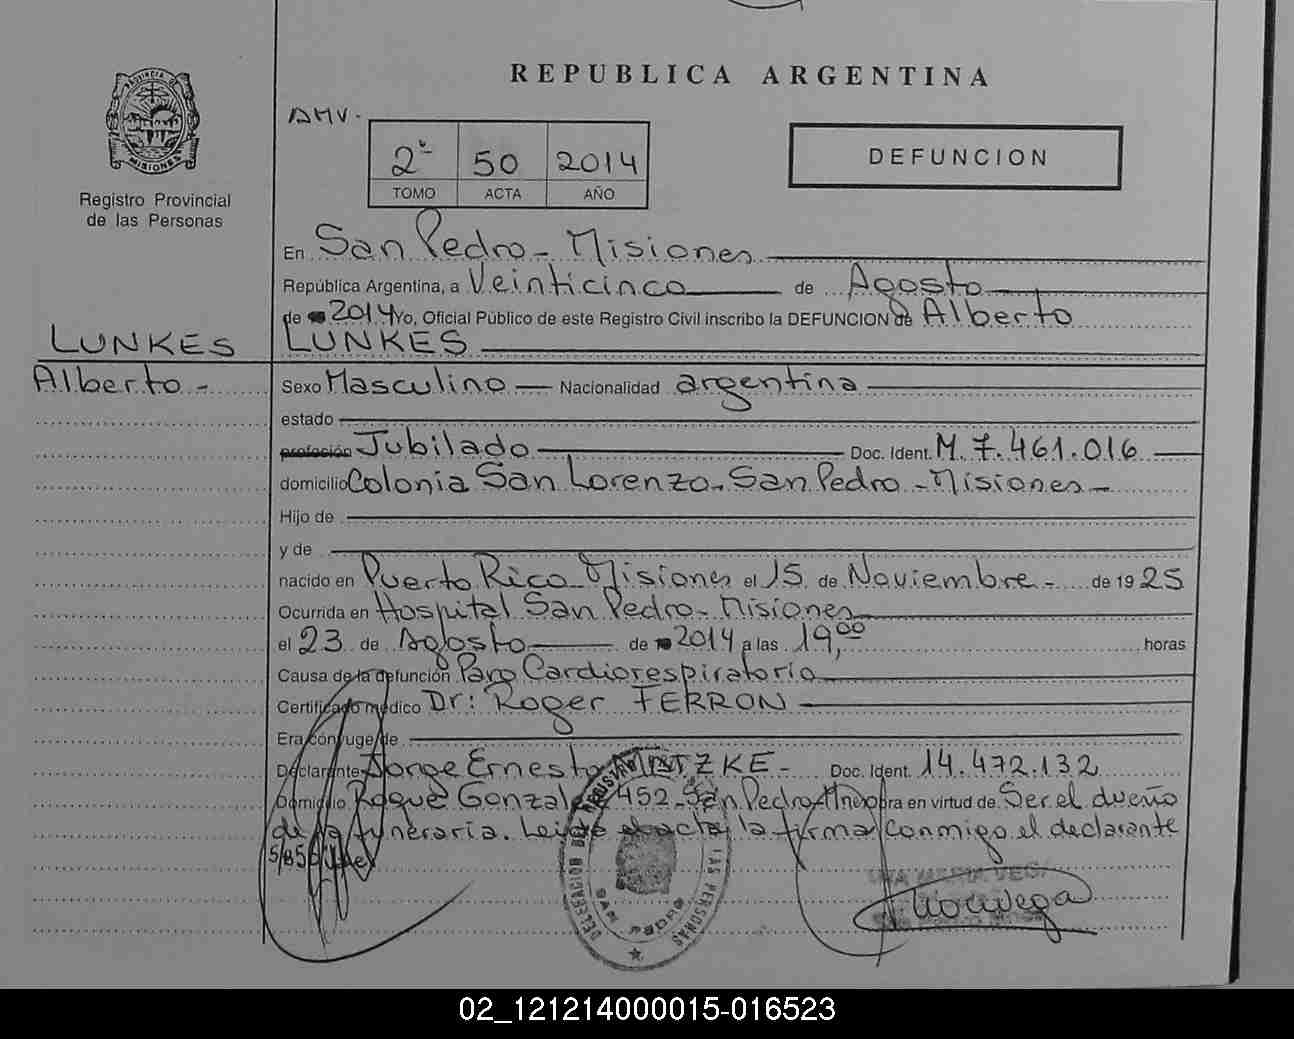 REPUBLICA ARGENTINA
PROVINCIA DE
MISIONES
Registro Provincial
de las Personas
AMV.
2º 50 2014
TOMO ACTA AÑO
DEFUNCION
En San Pedro - Misiones
República Argentina, a Veinticinco de Agosto
de 2014 Yo, Oficial Público de este Registro Civil inscribo la DEFUNCION de Alberto
LUNKES LUNKES
Alberto - Sexo Masculino Nacionalidad argentina
estado
profesión Jubilado Doc. Ident. M 7.461.016
domicilio Colonia San Lorenzo - San Pedro - Misiones -
Hijo de
y de
nacido en Puerto Rico - Misiones el 15 de Noviembre - de 1925
Ocurrida en Hospital San Pedro - Misiones
el 23 de Agosto de 2014 a las 19,00 horas
Causa de la defunción Paro Cardiorespiratorio
Certificado médico Dr: Roger FERRON
Era cónyuge de
Declarante Jorge Ernesto Doc. Ident. 14.472.132
Domicilio Roque Gonzalez 452 - San Pedro Mnes obra en virtud de Ser el dueño
de la funeraria. Leida el acta, la firma conmigo el declarante
DELEGACION DEL REGISTRO LAS PERSONAS
SAN PEDRO
02_121214000015-016523